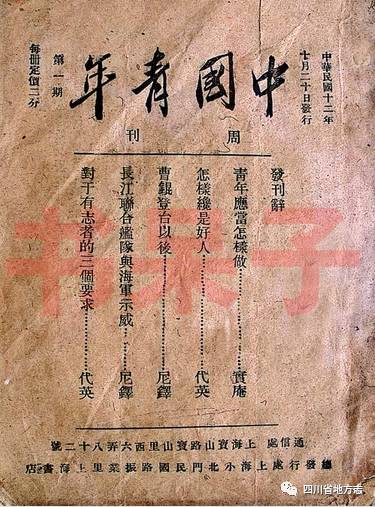 中華民國十二年
十月二十日發行
中國青年
第一期
每冊定價
周刊
發刊辭
青年應當怎樣做………實庵
怎樣纔是好人………代英
曹錕登台以後………尼鐸
長江聯合艦隊與海軍示威………尼鐸
對于有志者的三個要求………代英
通信處 上海寶山路寶山里西六弄八十二號
總發行處上海小北門民國路振業里上海書店
书果子
四川省地方志